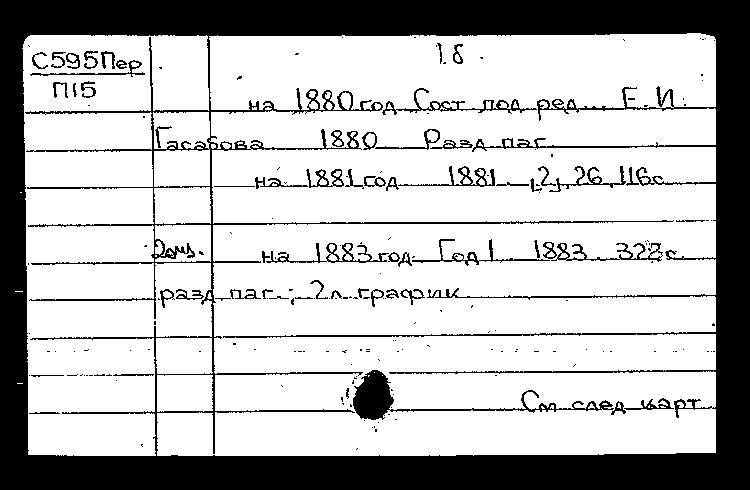 1б.
С595Пер
П15
на 1880 год Сост под ред... Е. И.
Гасабова 1880 Разд паг.
на 1881 год 1881. [2], 26, 116с
2 экз. на 1883 год. Год 1 1883. 328с
разд паг.; 2л график.
См след карт